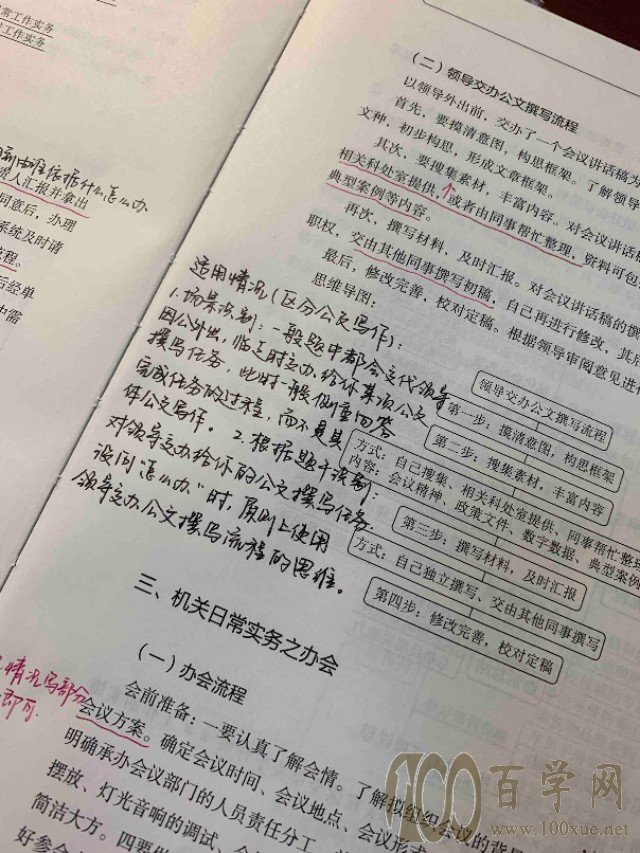 常工作实务
工作实务
到由谁依据什么怎么办
成人汇报并拿出
同意后，办理
系统及时请
流程。
后经单
中需
（二）领导交办公文撰写流程
以领导外出前，交办了一个会议讲话稿为
首先，要摸清意图，构思框架。了解领导
文种，初步构思，形成文章框架。
其次，要搜集素材，丰富内容。对会议讲话稿
相关科处室提供，个或者由同事帮忙整理，资料可包
典型案例等内容。
再次，撰写材料，及时汇报。对会议讲话稿的撰
职权，交由其他同事撰写初稿，自己再进行修改，其后
最后，修改完善，校对定稿。根据领导审阅意见进行
思维导图：
适用情况（区分公文写作）：
1.场景识别：一般题中都会交代领导
因公外出，临走时交办给你某项公文
撰写任务，此时一般侧重回答
完成任务的过程，而不是具
体公文写作。2.根据题干识别：
对领导交办给你的公文撰写任务.
设问“怎么办”时，原则上使用
领导交办公文撰写流程的思维。
领导交办公文撰写流程
第一步：摸清意图，构思框架
第二步：搜集素材，丰富内容
方式：自己搜集、相关科处室提供、同事帮忙整理
内容：会议精神、政策文件、数字数据、典型案例
第三步：撰写材料，及时汇报
方式：自己独立撰写、交由其他同事撰写
第四步：修改完善，校对定稿
三、机关日常实务之办会
（一）办会流程
情况写部分
即可.
会前准备：一要认真了解会情。了解拟组织会议的背景
会议方案。确定会议时间、会议地点、会议形式
明确承办会议部门的人员责任分工
摆放、灯光音响的调试、会
简洁大方。四要做
好参会
100百学网
www.100xue.net